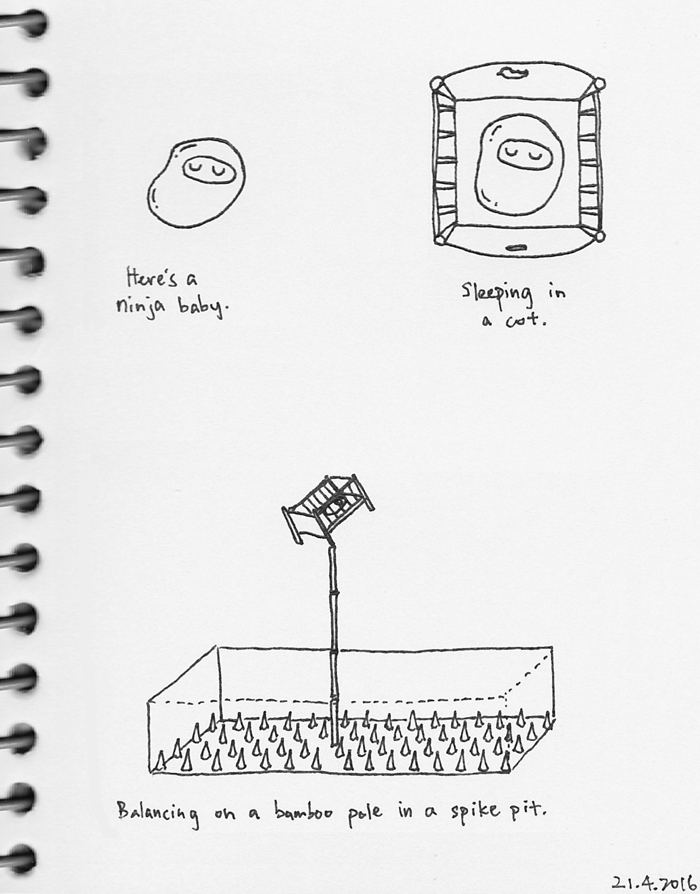 Here's a
ninja baby.
Sleeping in
a cot.
Balancing on a bamboo pole in a spike pit.
21.4.2016